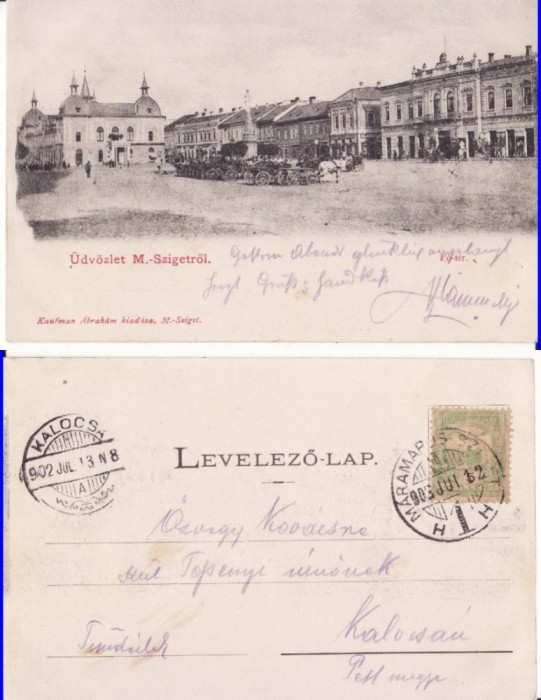 Üdvözlet M.-Szigetről.
Fő-tér.
Gestern Abend glücklich angelangt
Gruß & Handkuß
Kaufman Ábrahám kiadása, M.-Sziget.
KALOCSA
902 JUL 13 N 8
A
LEVELEZŐ-LAP.
MÁRAMAROS SZIGET
902 JUL 12
H H
T
Özvegy Kovácsné
szül Tepenyi úrnőnek
Kalocsán
Pest megye